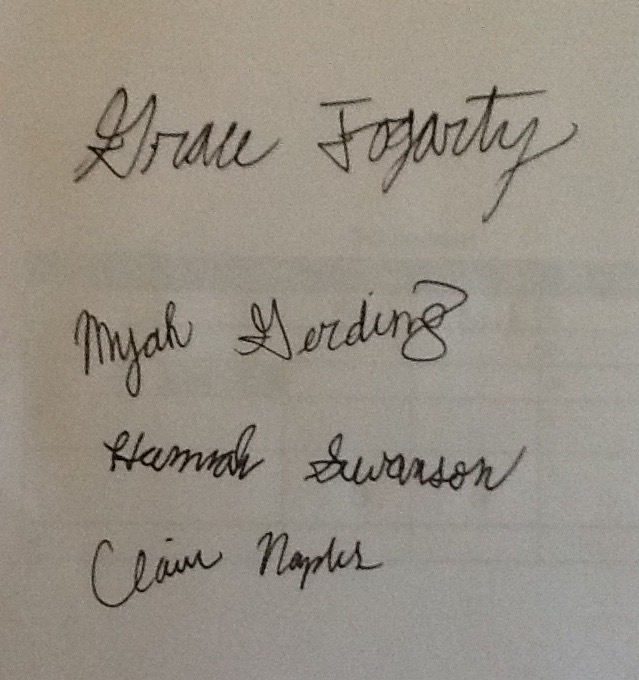 Grace Fogarty
Myah Gerding
Hannah Swanson
Claire Naples